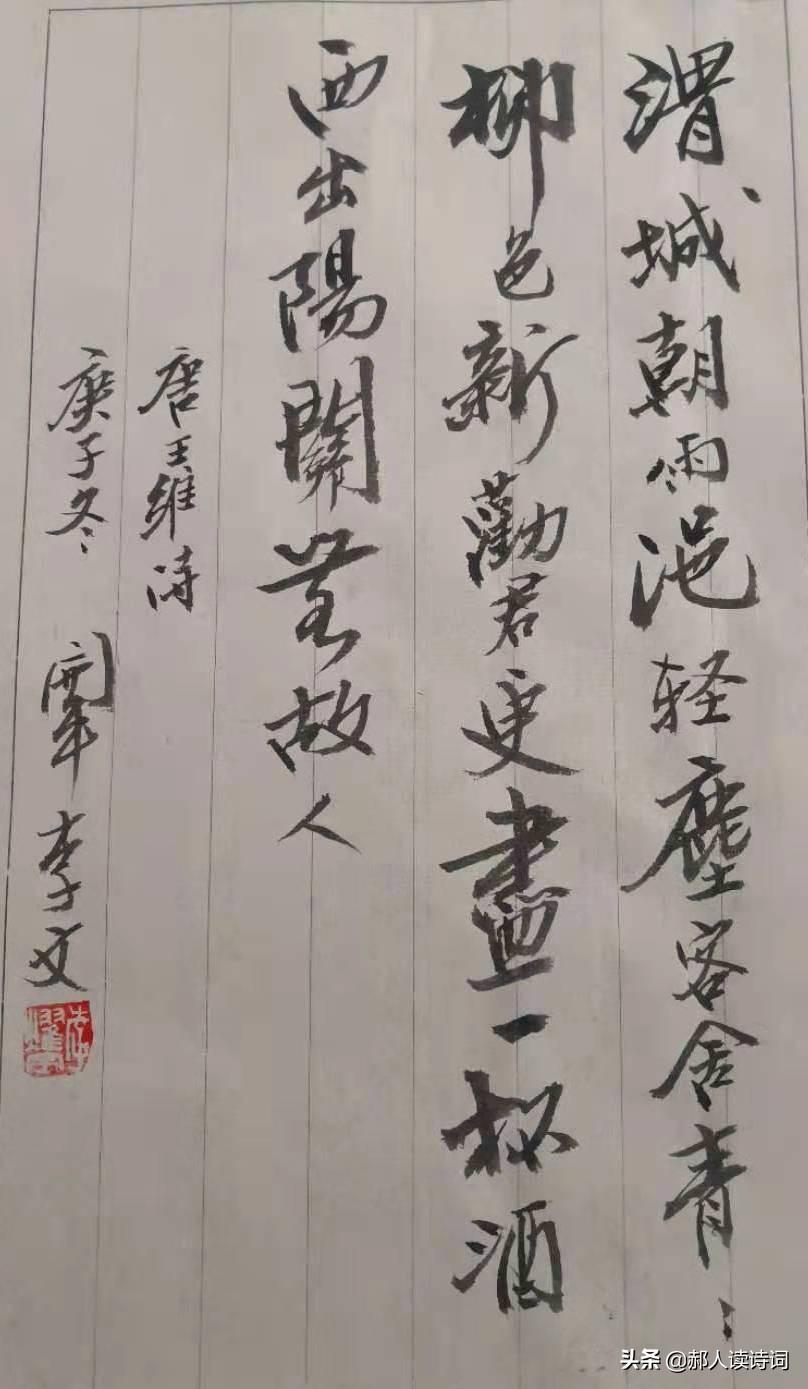 渭城朝雨浥轻塵客舍青：
柳色新勸君更盡一杯酒
西出陽關無故人
唐王維詩
庚子冬 李文
头条 @郝人读诗词